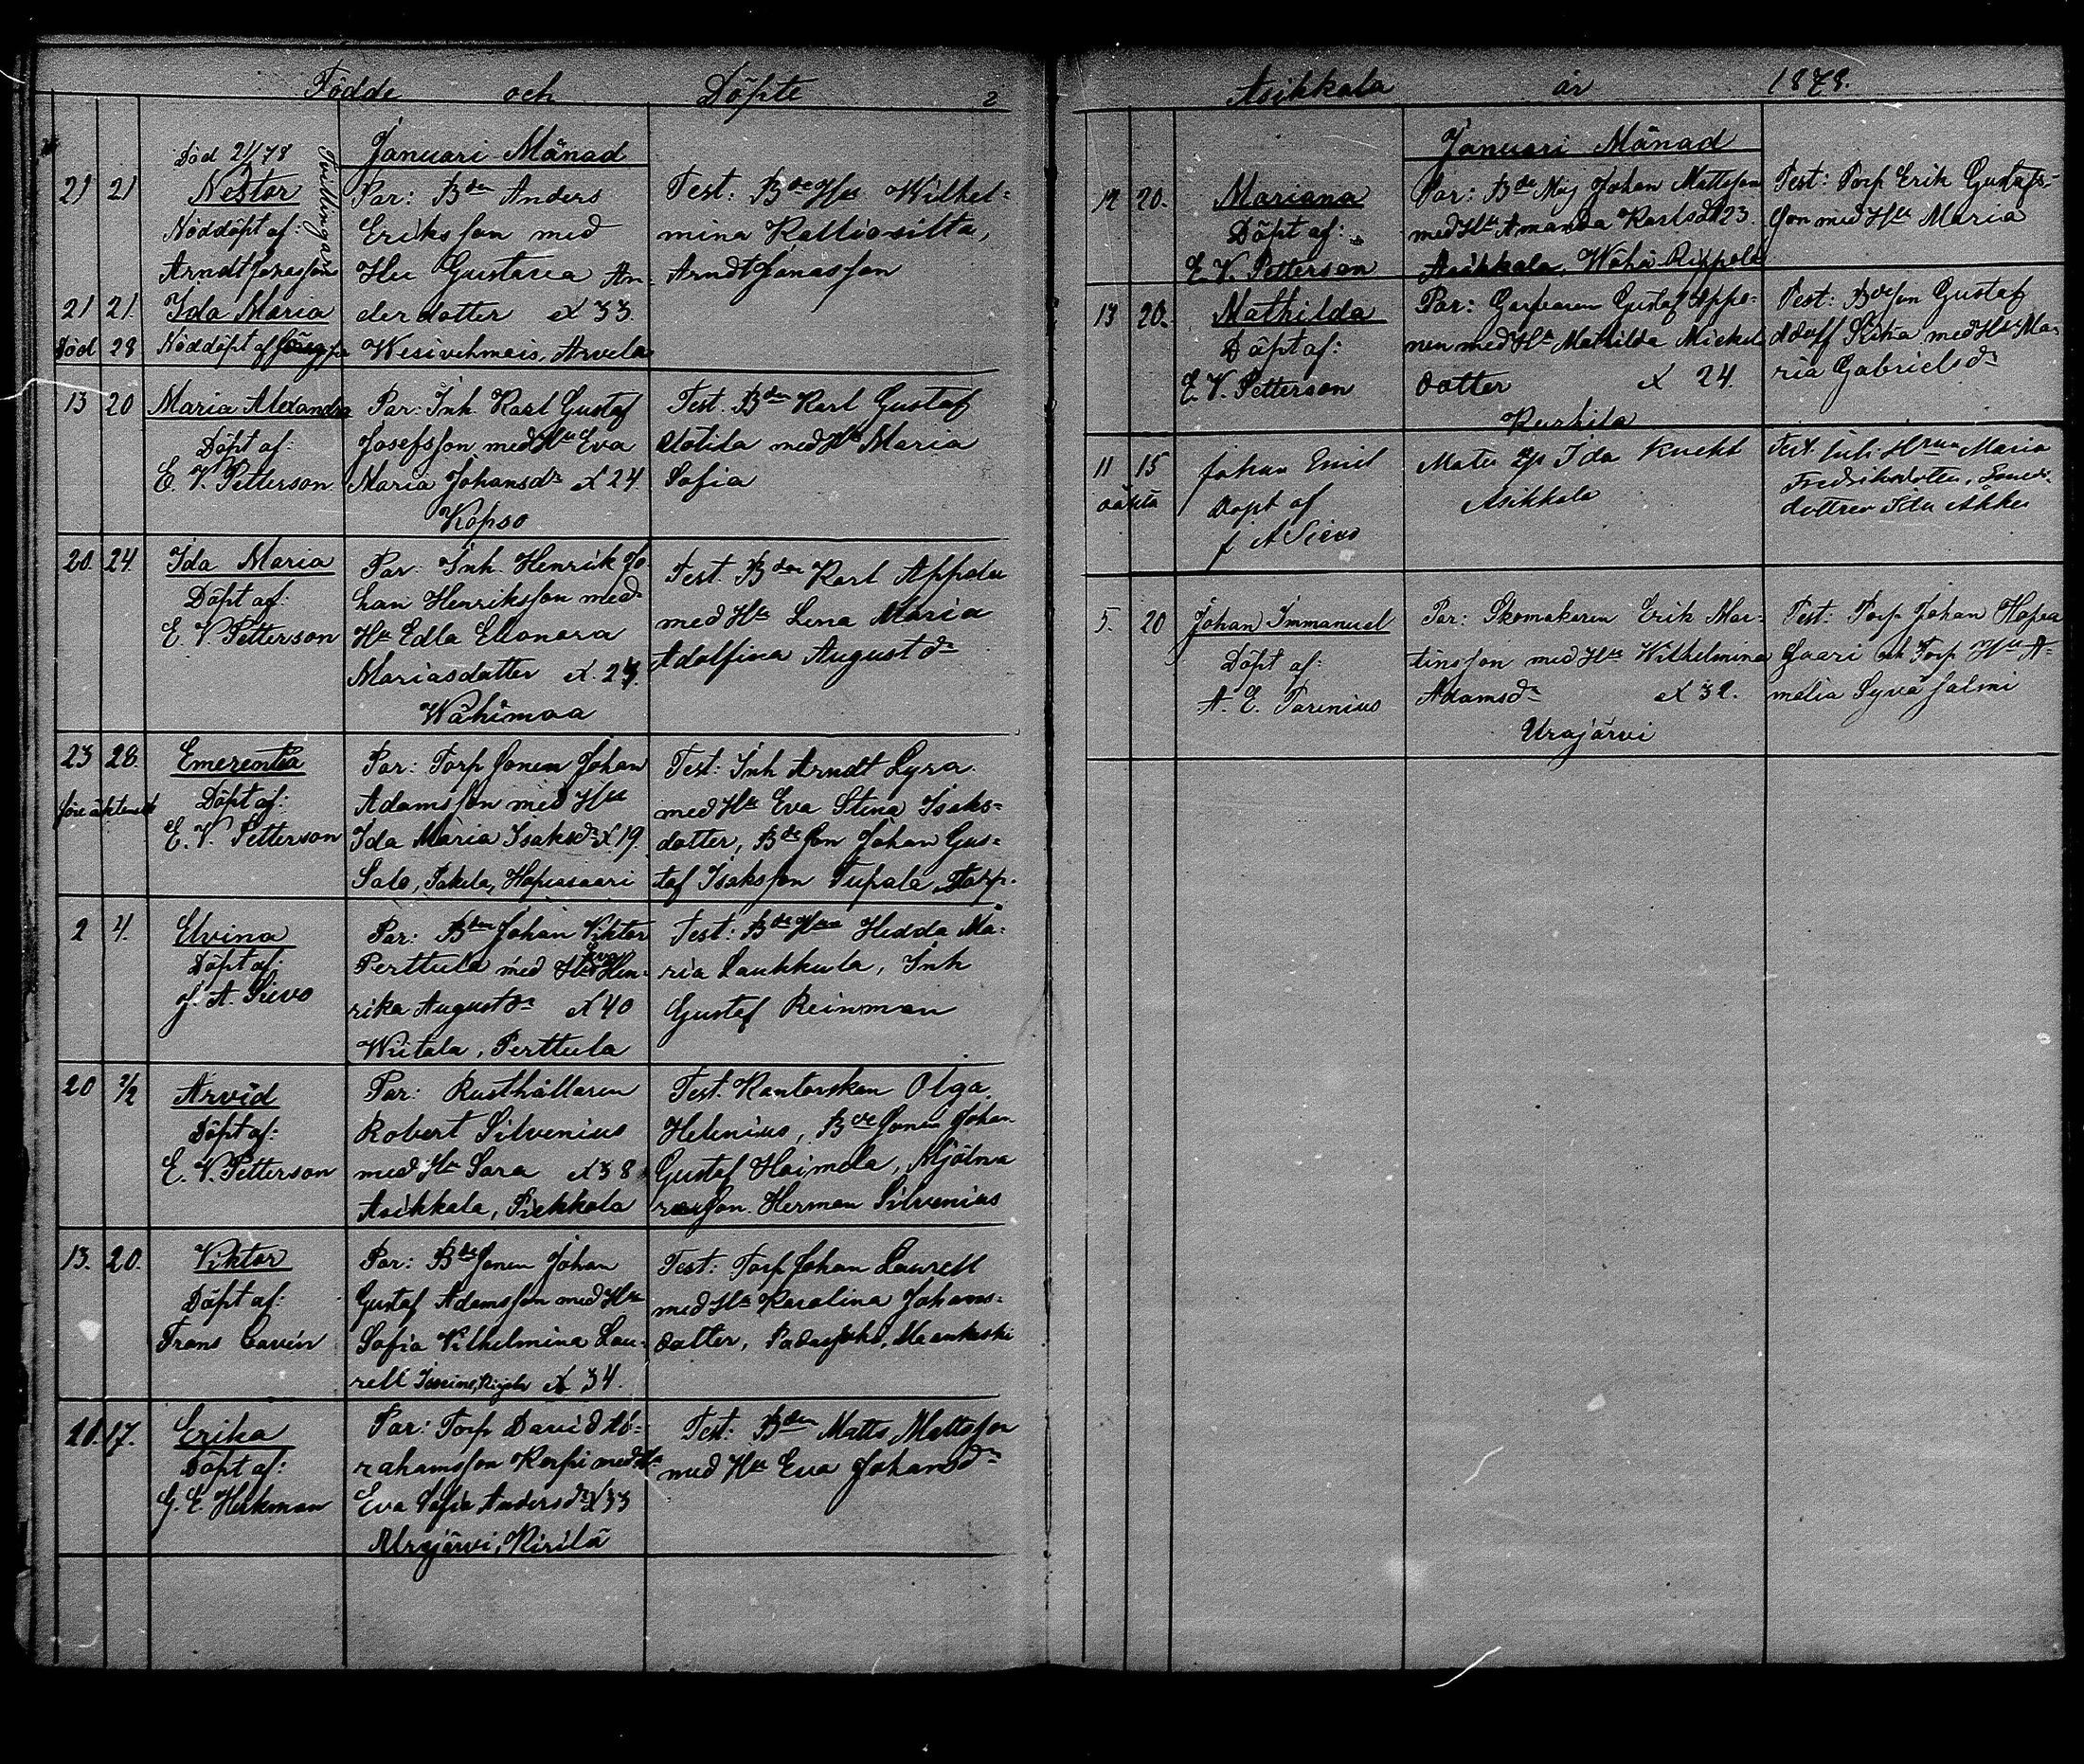 Födde och Döpte 2
Död 2/1 78
Januari Månad
Tvillingar
21 21 Nestor
Nöddöpt af:
Arndt Jonasson
Par: Bden Anders
Eriksson med
Hu Gustava An-
dersdotter ex 33
Wesivehmais, Arvela
Test: Bde Hu Wilhel=
mina Kalliosilta,
Arndt Jonasson
21 21. Ida Maria
Död 28 Nöddöpt af
13 20 Maria Alexandra
Döpt af:
E. V. Petterson
Par: Inh. Karl Gustaf
Josefsson med Hu Eva
Maria Johansdr ex 24.
Kopso
Test. Bden Karl Gustaf
med Hu Maria
Sofia
20. 24. Ida Maria
Döpt af:
E. V. Petterson
Par: Inh. Henrik Jo
han Henriksson med
Hu Edla Elionora
Mariasdotter ex.
Wähimaa
Test. Bden Karl Appola
med Hu Lena Maria
Adolfina Augustdr
23 28. Emerentia
före äktensk
Döpt af:
E. V. Petterson
Par: Torp Sonen Johan
Adamsson med Hu
Ida Maria Isaksdr ex 19.
Salo, Pakila, Hopiasaari
Test: Inh Arndt Lyra
med Hu Eva Stina Isaks=
dotter, Bde Son Johan Gus=
taf Isaksson Tupala Torp.
2 4. Elvina
Döpt af:
J. A. Sievo
Par: Bden Johan Viktor
Perttula med Hu Eva Hen-
rika Augustdr ex 40
Wiitala, Perttula
Test: Bde Hu Hedda Ma-
ria Laukkula, Inh
Gustaf Reinman
20 2/2 Arvid
Döpt af:
E. V. Petterson
Par: Rusthållaren
Robert Silvenius
med Hu Sara ex 38
Asikkala, Piekkala
Test. Kantorskan Olga
Helenius, Bde Sonen Johan
Gustaf Heimola, Mjölna
reson. Herman Silvenius
13. 20. Viktor
Döpt af:
Frans Cavén
Par: Bde Sonen Johan
Gustaf Adamsson med Hu
Sofia Vilhelmina Lau-
rell ex 34.
Test: Torp Johan Laurell
med Hu Karolina Johans=
dotter, Padasjoki, Maankeski
17. Erika
Döpt af:
G. E. Heikman
Par: Torp David Ab=
rahamsson Korpi med Hu
Eva Sofia Andersdr ex 33
Urajärvi, Kirilä
Test: Bden Matts Mattsson
med Hu Eva Johansdr
Asikkala år 1878.
Januari Månad
12 20. Mariana
Döpt af:
E. V. Petterson
Par: Bde Måg Johan Mattsson
med Hu Amanda Karlsdr 23.
Asikkala, Wähä Rippola
Test: Torp Erik Gustafs=
son med Hu Maria
13 20. Mathilda
Döpt af:
E. V. Petterson
Par: Garfvaren Gustaf Leppä-
nen med Hu Mathilda Mickels
dotter ex 24.
Kurhila
Test: Bde son Gustaf
Adolf Sika med Hu Ma-
ria Gabrielsdr
11 15 Johan Emil
oäkta
Döpt af
J A Sievo
Mater Ida Knekt
Asikkala
Test. Inh Hrun Maria
Fredriksdotter,
dottren Ida Ahkes
5. 20 Johan Immanuel
Döpt af:
A. E. Parenius
Par: Skomakaren Erik Mar-
tinsson med Hu Wilhelmina
Adamsdr ex 32.
Urajärvi
Test: Torp Johan Hopea
Saari och Torp Hu A-
malia Syväsalmi